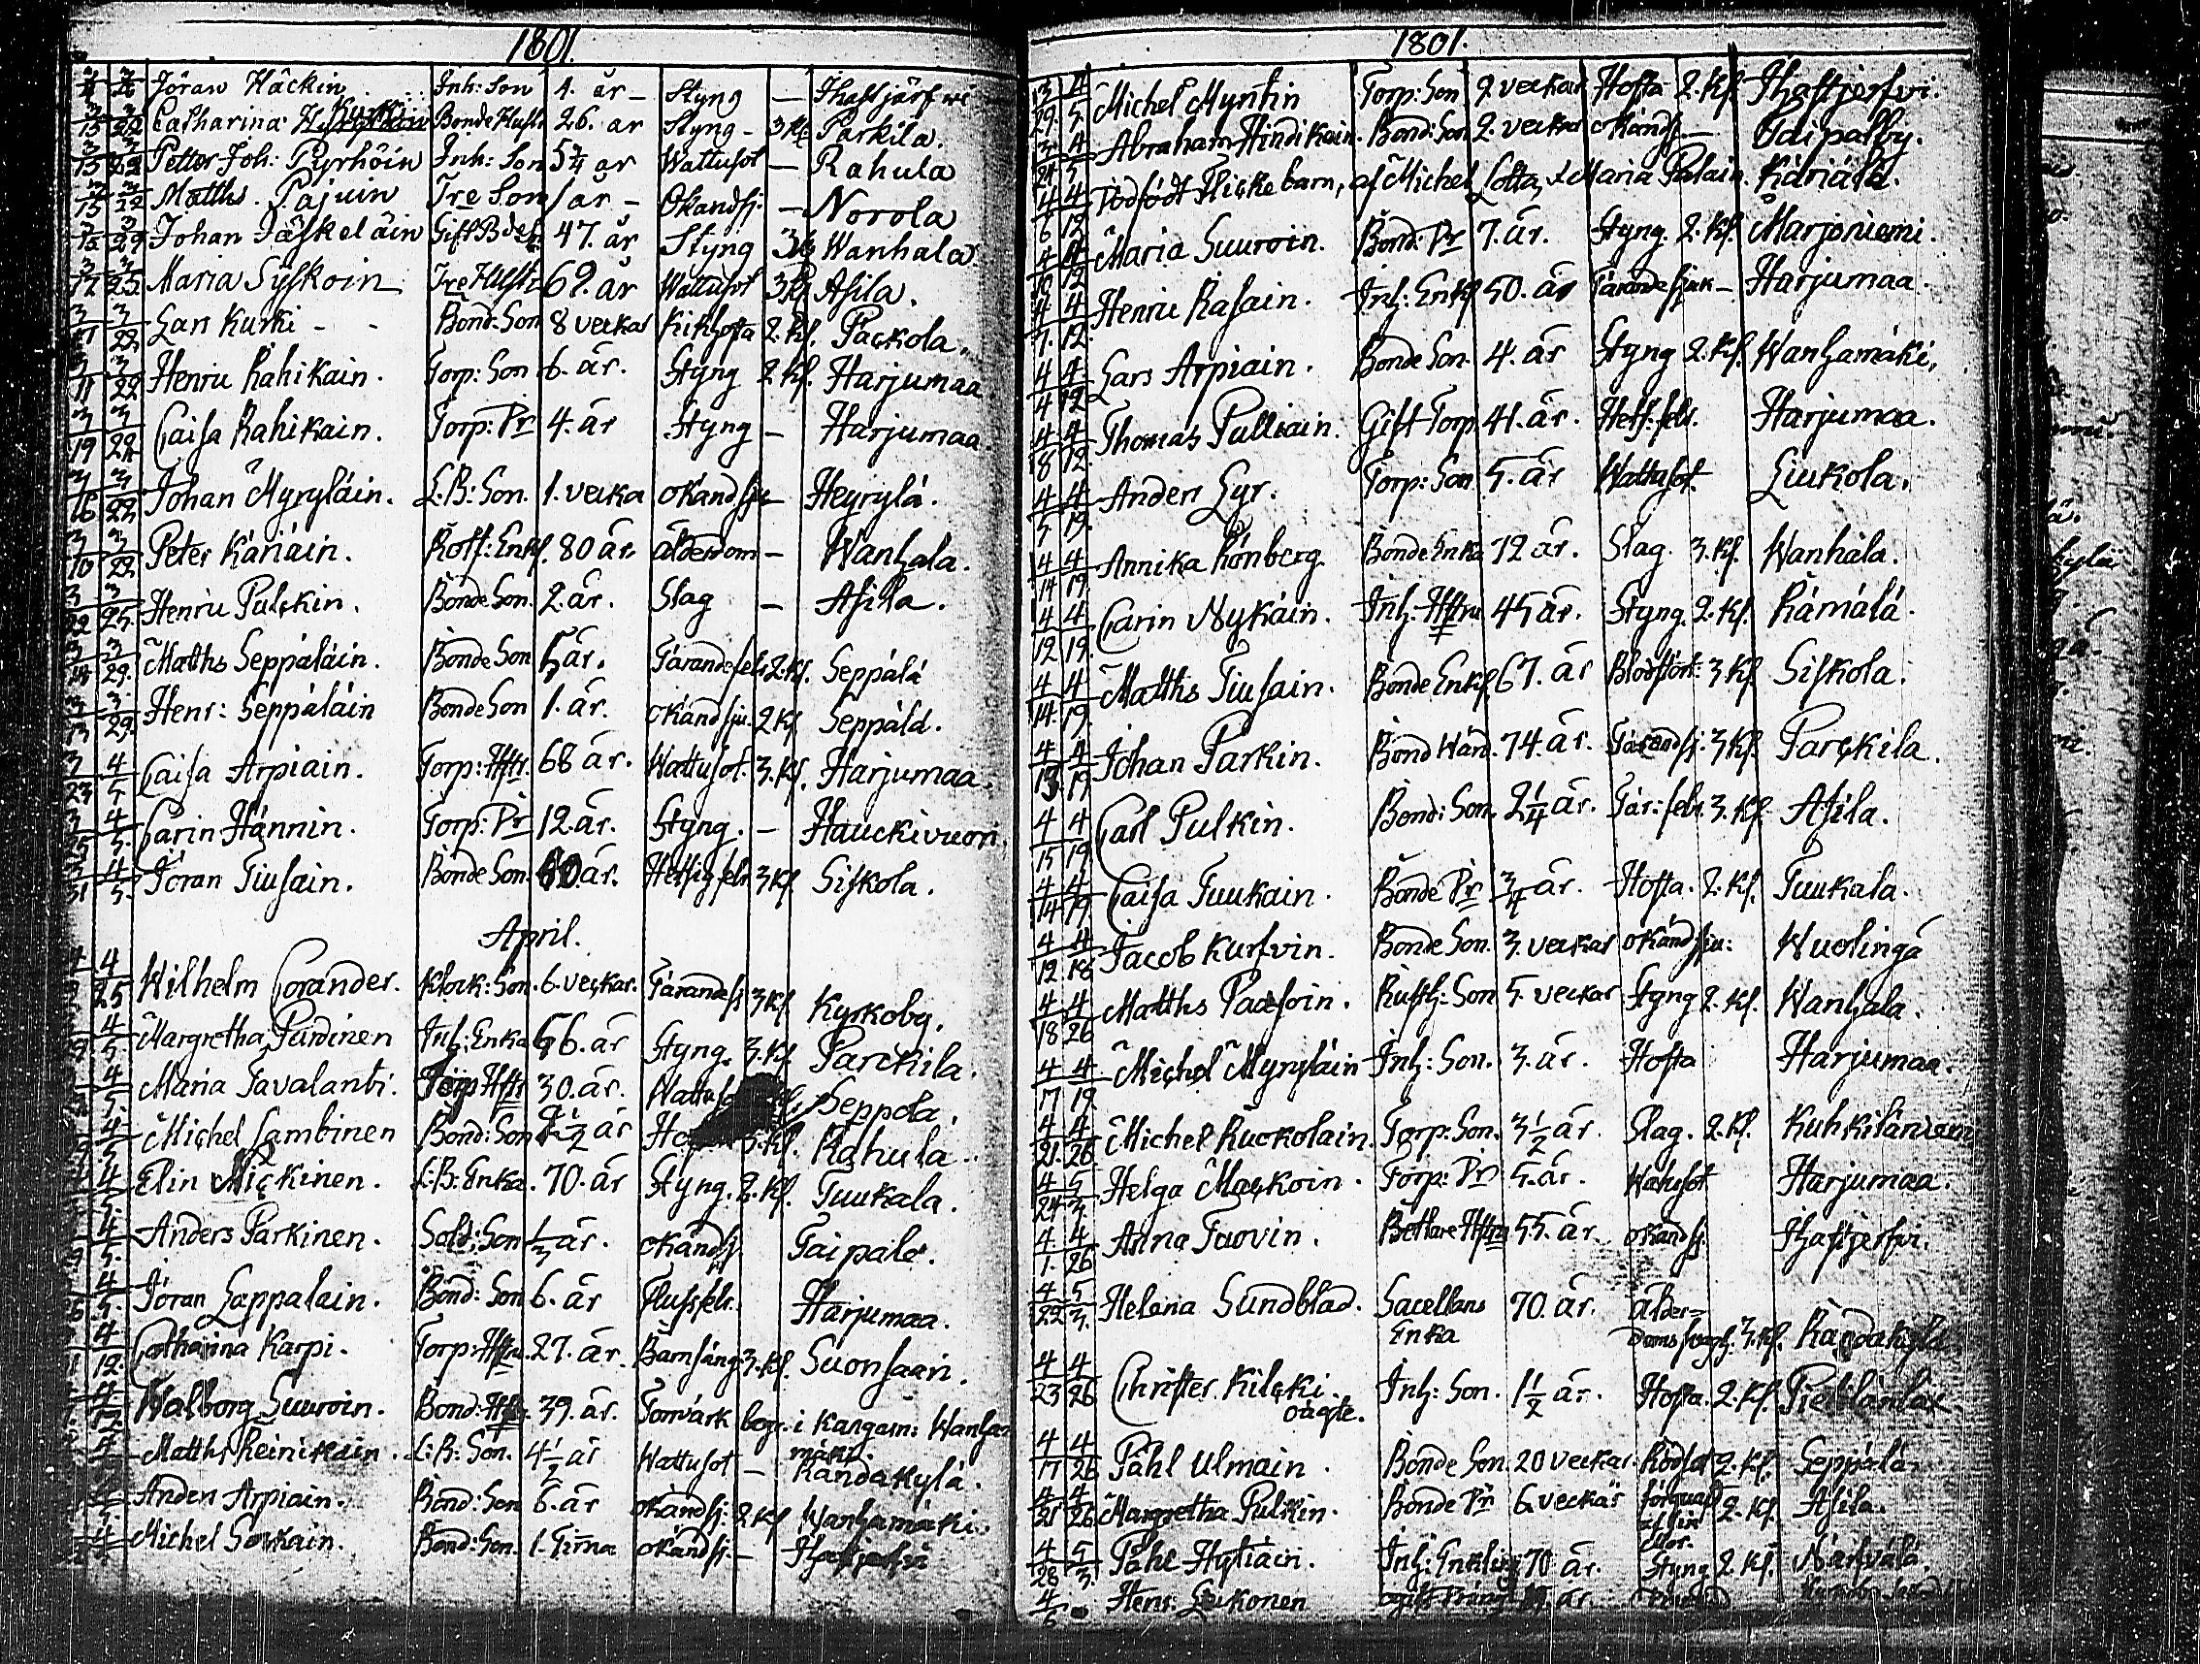 1801.
3/15 3/22 Jöran Häckin Inh: Son 1. år - Styng - Ihastjärfwi
3/15 3/22 Catharina Kurki Bonde Hustr 26. år Styng - 3 Kl. Parkila.
3/15 3/22 Petter Joh: Pyrhöin Inh: Son 5 1/4 år Wattusot - Rahula
3/15 3/22 Matths. Pajuin Son 1 år - Okändsj: - Norola
3/15 3/29 Johan Jäskeläin Gift 47. år Styng Wanhala.
3/17 3/25 Maria Syskoin 62. år Wattusot 3 Kl Asila.
3/17 3/22 Lars Kurki - - Bond: Son 8 veckor Kikhosta 2. Kl. Packola.
3/11 3/22 Henric Rahikain. Torp: Son 6. år. Styng 2. Kl. Harjumaa
3/19 3/22 Caisa Rahikain. Torp: Pr 4. år Styng - Harjumaa.
3/16 3/22 Johan Myryläin. L:B: Son. 1. vecka okänd sju - Heyrylä.
3/10 3/22 Peter Käriäin. Rott: Enkl. 80 år. ålderdom - Wanhala.
3/22 3/25. Henric Pulckin. Bonde Son. 2. år. Slag - Asila.
3/14 3/29. Matths Seppäläin. Bonde Son 5 år. Tärande febr 2. Kl. Seppälä
3/13 3/29. Henr: Seppäläin Bonde Son 1. år. okänd sju. 2 Kl Seppälä.
3/23 4/5 Caisa Arpiain. Torp: Hstr. 68 år. Wattusot. 3. Kl. Harjumaa.
3/25 4/5. Carin Hännin. Torp: Pr 12. år. Styng. - Hauckivuori.
3/31 4/5. Jöran Tiusain. Bonde Son. 60 år. Hetsig febr 3 Kl. Siskola.
April.
4/25 Wilhelm Corander. Klock: Son. 6. veckor. Tärandesj 3 Kl. Kyrkoby.
4/5. Margretha Pärdinen Inh: Enka 56. år Styng. 3. Kl Parckila.
4/5. Maria Tavalanti. Torp Hstr 30. år. Seppola.
4/5 Michel Lambinen Bond: Son 1/2 år 3. Kl. Rahula.
4/5. Elin Mickinen. L:B: Enka. 70. år Styng. 2. Kl. Tuukala.
4/5. Anders Parkinen. Sold: Son 1/3 år. okändsj. Taipale.
4/5. Jöran Lappalain. Bond: Son 6. år Flussfebr. Harjumaa.
4/12. Catharina Karpi. Torp: Hstru. 27. år. Barnsäng 3. Kl. Suonsaari.
4/12 Walborg Suuroin. Bond: Hstr. 39. år. Torvärk begr. i Kangasn: Wanha-
mäki.
Matths Reinikain. L:B: Son. 4 1/2 år Wattusot - Randakylä.
Anders Arpiain. Bond: Son 6. år okändsj: 2 Kl Wanhamäki.
Michel Sorkain. Bond: Son. 1. Tima okändsj. - Ihastjerfvi
1801.
3/29. 4/5. Michel Myntin Torp: Son 2. veckor Hosta 2. Kl. Ihastjerfvi.
3/24 4/5 Abraham Hindikain. Bond: Son 2. veckor okändsj. - Taipalby.
4/6 4/12 Dödfödt Flickebarn, af Michel Lotta, & Maria Palain. Käriälä.
4/10 4/12 Maria Suuroin. Bond: Pr 7. år. Styng. 2. Kl. Marjoniemi.
4/7. 4/12. Henric Rasain. Inh: Enkl 50. år Tärande sjuk - Harjumaa.
4/4 4/12 Lars Arpiain. Bonde Son. 4. år Styng 2. Kl. Wanhamäki.
4/8 4/12. Thomas Pulliain. Gift Torp 41. år. Hets: febr. Harjumaa.
4/5 4/19. Anders Lyr. Torp: Son 5. år Wattusot. Liukola.
4/14 4/19. Annika Rönberg Bonde Enka 72 år. Slag. 3. Kl. Wanhala.
4/12 4/19. Carin Nykäin. Inh: Hstru 45 år. Styng. 2. Kl. Rämälä.
4/14. 4/19. Matths Tiusain. Bonde Enkl 67. år Blodstört: 3 Kl. Siskola.
4/13. 4/19 Johan Parkin. Bond Wärd. 74. år. Tärandsj. 3 Kl. Parckila.
4/15 4/19 Carl Pulkin. Bond: Son. 2 1/4 år. Tär: febr. 3. Kl. Asila.
4/14 4/19 Caisa Tuukain. Bonde Pr 3/4 år. Hosta. 2. Kl. Tuukala.
4/12 4/18 Jacob Kurfvin. Bonde Son. 3. veckor okänd sju: Wuolingå
4/18 4/26 Matths Paasoin. Rusth: Son 5. veckor Styng 2. Kl. Wanhala.
4/17 4/19 Michel Myryläin Inh: Son. 3. år. Hosta Harjumaa.
4/21. 4/26 Michel Ruckolain. Torp: Son. 3 1/2 år. Slag. 2. Kl. Kuhkiläniemi
4/24 5/3. Helga Mackoin. Torp: Pr 5. år. Wattusot Harjumaa.
4/1. 4/26 Anna Tuovin. Bettlare Hstru 55. år. okändsj. Ihastjerfvi.
4/22 5/3. Helena Sundblad. Sacellans 70. år. Ålder-
Enka doms svagh: 3. Kl. Randakylä
4/23 4/26 Christer Kilcki. Inh: Son. 1 1/2 år. Hosta. 2. Kl. Pietilänlax
oägte.
4/17 4/26 Påhl Ulmain. Bonde Son 20 veckor. Rödsot 2. Kl. Seppälä.
4/25 4/26 Margretha Pulkin. Bonde Pr 6 veckor förqvafd 2. Kl. Asila.
af sin
4/28 5/3. Påhl Hytiäin. Inh: Enkling 70. år. Styng 2. Kl. Närfvälä.
4/6 Henr: Liukonen